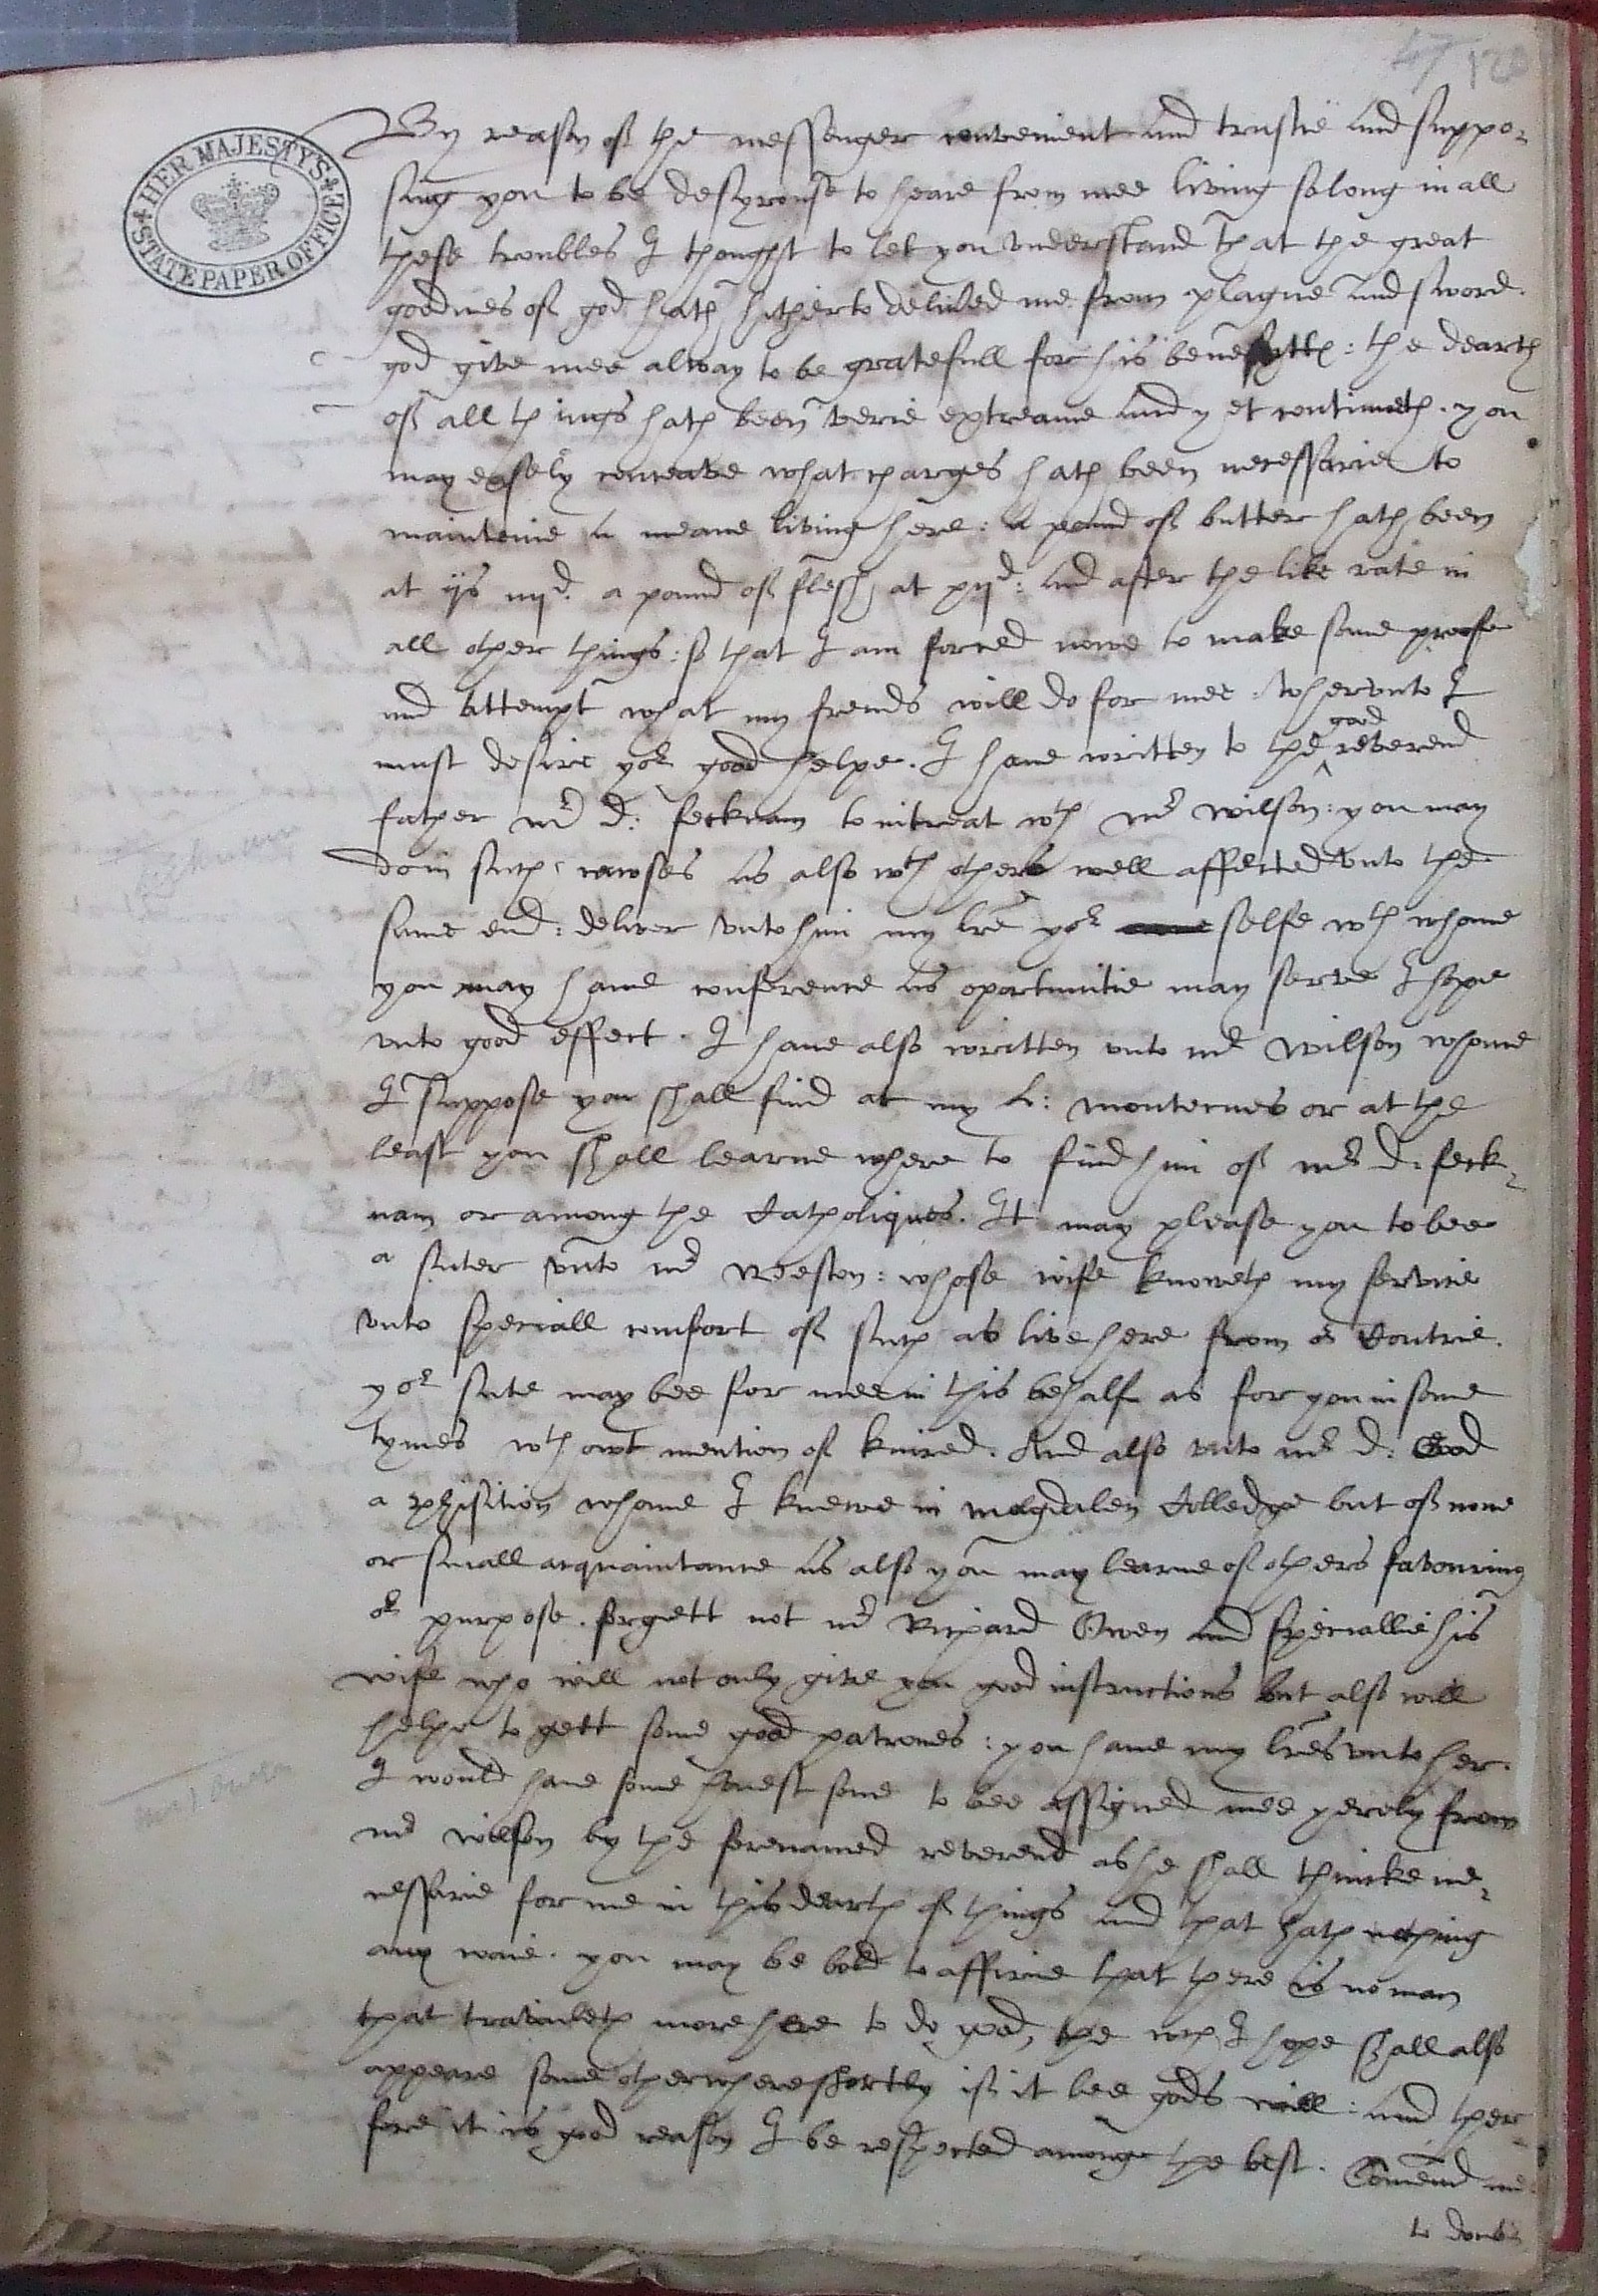 47 120
HER MAJESTY'S
STATE PAPER OFFICE
By reason of the messenger convenient and trustie and suppo-
sing you to be desyrouse to heare from mee living so long in all
these troubles I thought to let you understand that the great
goodnes of god hath hitherto delived me from plague and sword.
god give mee alway to be gratefull for his : the dearth
of all things hath been verie extreame and yet continueth. you
may easely conceave what charges hath been necessarie to
mainteine a meane living here: a pound of butter hath been
at ijs iiijd. a pound of flesh at xijd: and after the like rate in
all other things: so that I am forced nowe to make some proofe
and attempt what my frends will do for mee: whervnto I
must desire yor good helpe. I have written to the good reverend
father mr d: fecknam to intreat wth mr wilson: you may
do in such cawses as also wth others well affected vnto the
same end: deliver vnto him my lre yor selfe wth whome
you may have conference as oportunitie may serve I hope
vnto good effect. I have also written vnto mr wilson whome
I suppose you shall find at my L: or at the
least you shall learne where to find him of mr d: feck-
nam or among the Catholiques. It may please you to bee
a suter vnto mr Weston: whose wife knoweth my service
vnto speciall comfort of such as live here from or Contrie.
yor sute may bee for mee in this behalf as for you in some
tymes wth owt mention of kinred. And also vnto mr d:
a phisition whome I knewe in magdalen Colledge but of none
or small acquaintance as also you may learne of others favouring
or purpose. forgett not mr Richard Owen and speciallie his
wife who will not only give you good instructions but also will
helpe to gett some good patrones: you have my lres vnto her.
I would have some honest some to bee assigned mee yerely from
mr wilson by the forenamed reverend as he shall thincke ne-
cessarie for me in this dearth of things and that hath nothing
any waie. you may be bold to affirme that there is no man
that travaileth more here to do good, the wch I hope shall also
appeare some other where shortly if it bee gods will: and ther-
fore it is good reason I be respected amonge the best. Comend me
to